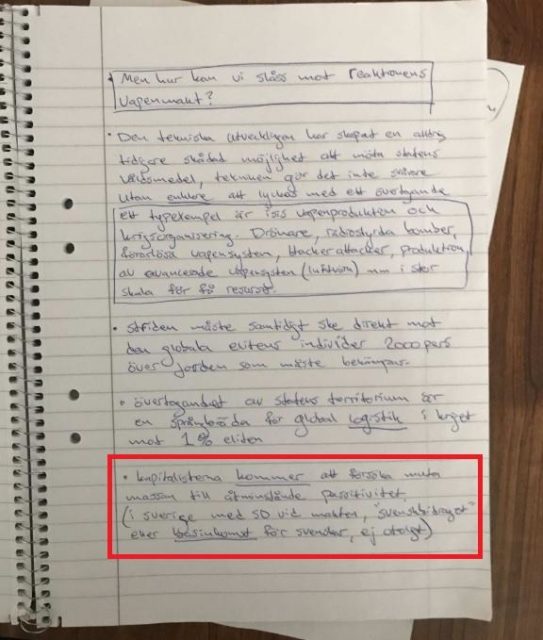 Men hur kan vi slåss mot reaktionens
vapenmakt?
• Den tekniska utvecklingen har skapat en aldrig
tidigare skådad möjlighet att möta statens
våldsmedel, tekniken gör det inte svårare
utan enklare att lyckas med ett övertagande
ett typexempel är isis vapenproduktion och
krigsorganisering. Drönare, radiostyrda bomber,
förarlösa vapensystem, Hackerattacker, produktion
av avancerade vapensystem (luftvärn) mm i stor
skala för få resurser.
• striden måste samtidigt ske direkt mot
den globala elitens individer 2000 pers
över jorden som måste bekämpas.
• övertagandet av statens territorium är
en språngbräda för global logistik i kriget
mot 1% eliten
• kapitalisterna kommer att försöka muta
massan till åtminstånde passivitet.
(i sverige med SD vid makten, "svenskbidraget"
eller basinkomst för svenskar, ej otoligt)